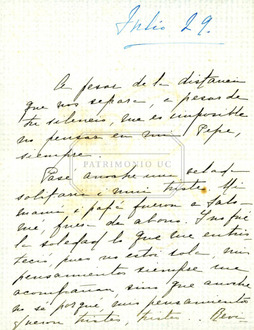 Julio 29.
A pesar de la distancia
que nos separa, a pesar de
tu silencio, me es imposible
no pensar en mi Pepe,
siempre.
PATRIMONIO UC
Pasé anoche una velada
solitaria i mui triste. Mi
mamá i papá fueron a Salo-
mé, fuera de abono. I no fué
la soledad lo que me entris-
teció, pues no estoi sola, mis
pensamientos siempre me
acompañan, sino que anoche
no sé porqué, mis pensamientos
fueron tristes, tristes.